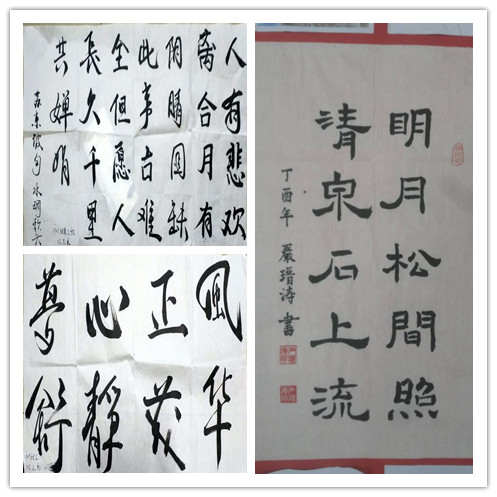 人有悲欢
离合月有
阴晴圆缺
此事古难
全但愿人
長久千里
共婵娟
苏東坡句水調歌
風华
正茂
心静
夢
明月松間照
清泉石上流
丁酉年 嚴瑨涛書